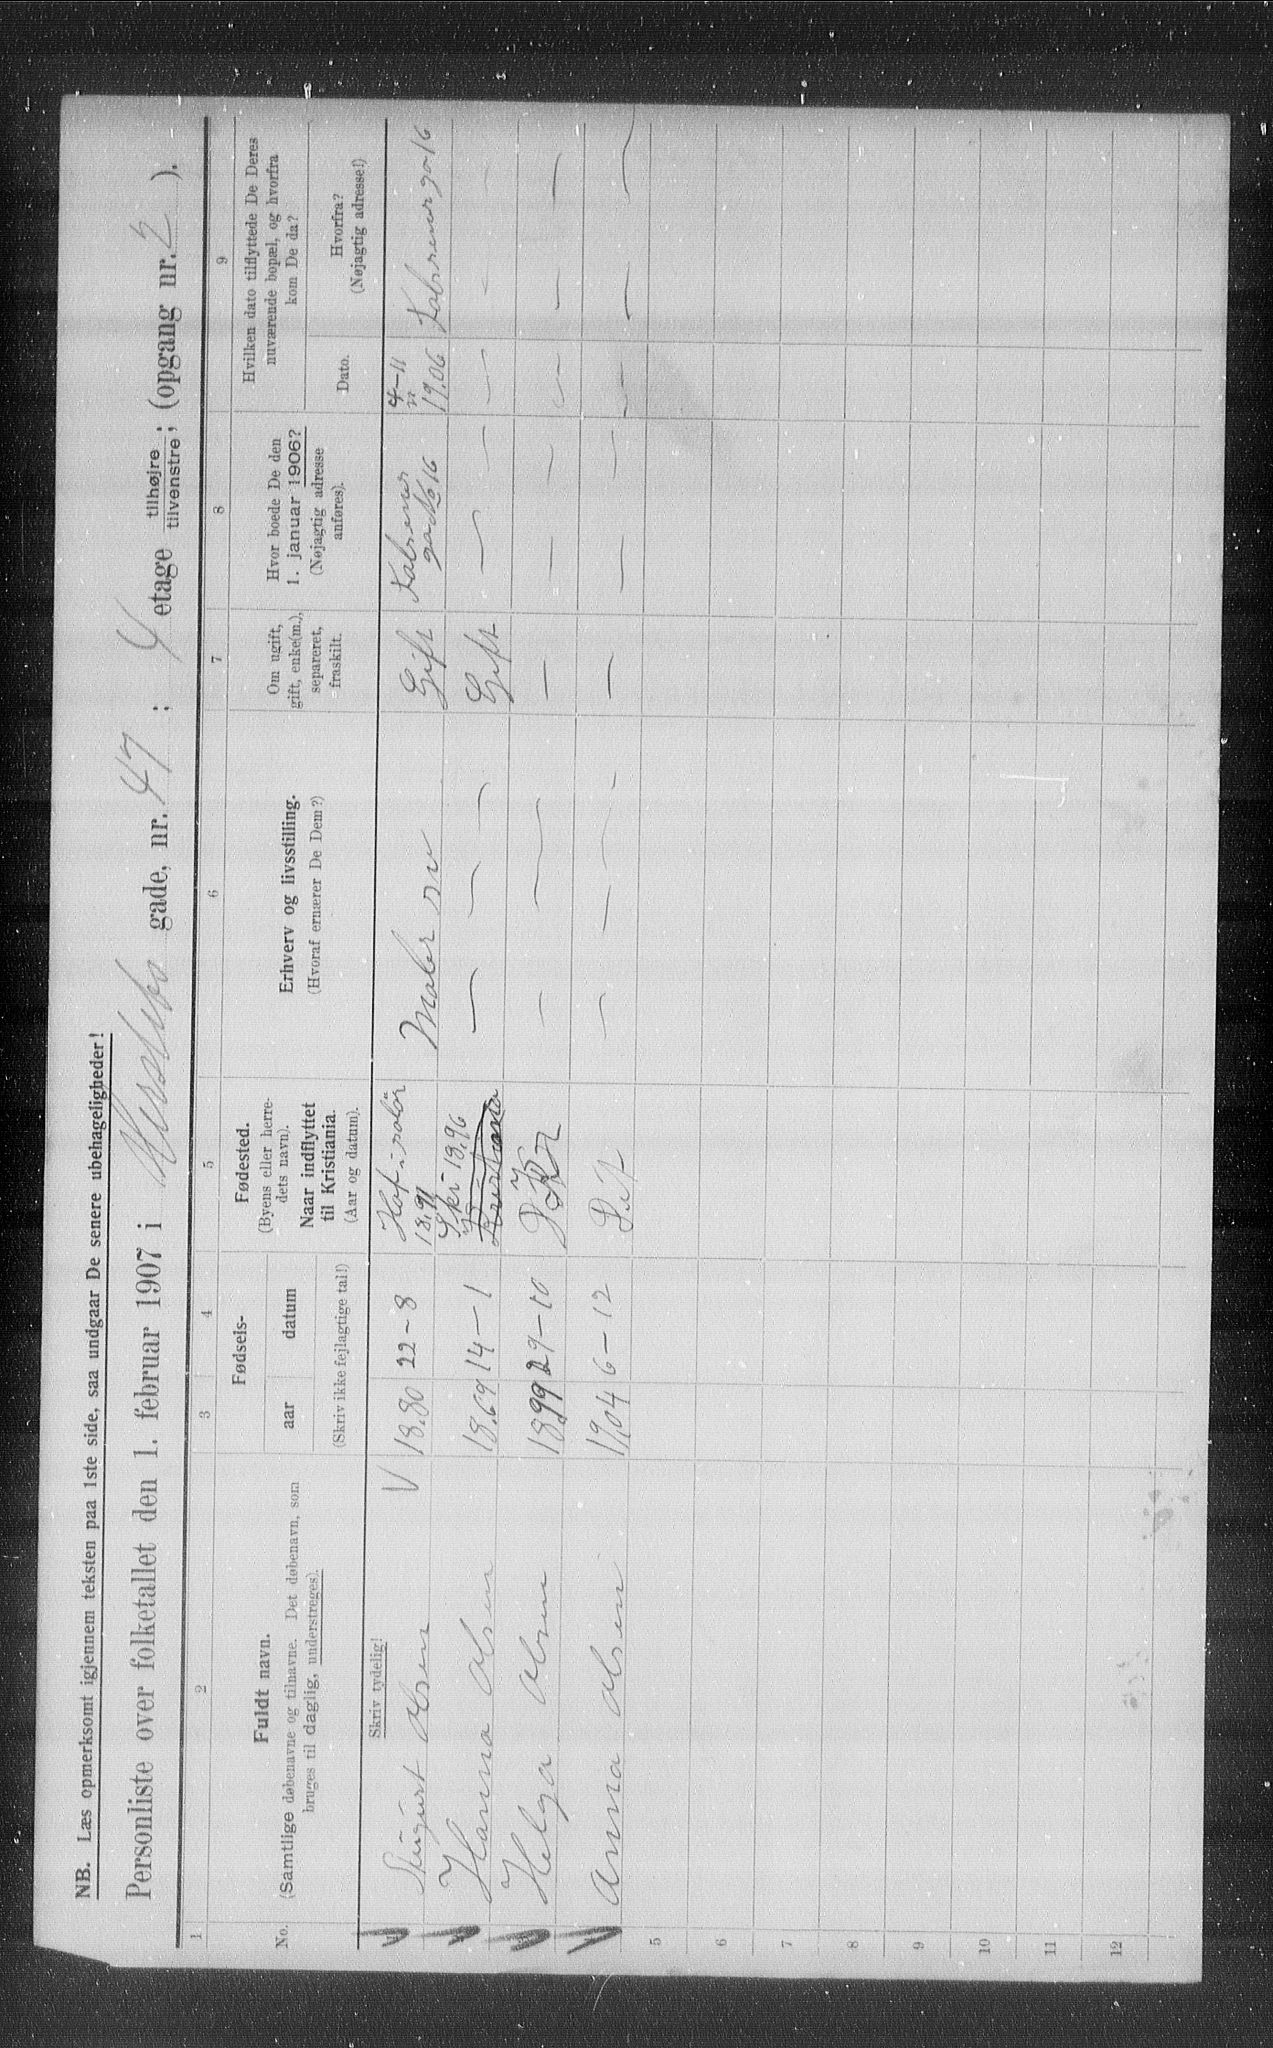 NB. Læs opmerksomt igjennem teksten paa 1ste side, saa undgaar De senere ubehageligheder!
Personliste over folketallet den 1. februar 1907 i Herslebs gade, nr. 47 ; 4 etage tilhøjre tilvenstre; (opgang nr. 2 ).
1 2 3 4 5 6 7 8 9
No.
Fuldt navn.
(Samtlige døbenavne og tilnavne. Det døbenavn, som
bruges til daglig, understreges).
Fødsels-
aar datum
(Skriv ikke fejlagtige tal!)
Fødested.
(Byens eller herre-
dets navn).
Naar indflyttet
til Kristiania.
(Aar og datum).
Erhverv og livsstilling.
(Hvoraf ernærer De Dem?)
Om ugift,
gift, enke(m.),
separeret,
fraskilt.
Hvor boede De den
1. januar 1906?
(Nøjagtig adresse
anføres).
Hvilken dato tilflyttede De Deres
nuværende bopæl, og hvorfra
kom De da?
Dato.
Hvorfra?
(Nøjagtig adresse!)
Skriv tydelig!
Olsen 18.80 22-8 Hof i solör 18.91 Maler sv Gift 16 4-11 19.06 16
Hanna Olsen 18.69 14-1 Ski 18.96 Kristiania — — — Gift — — — — —
Helga Olsen 1899 29-10 — — — — — — — — —
Anna Olsen 19.04 6-12 Dit — — — — — — — — —
5
6
7
8
9
10
11
12